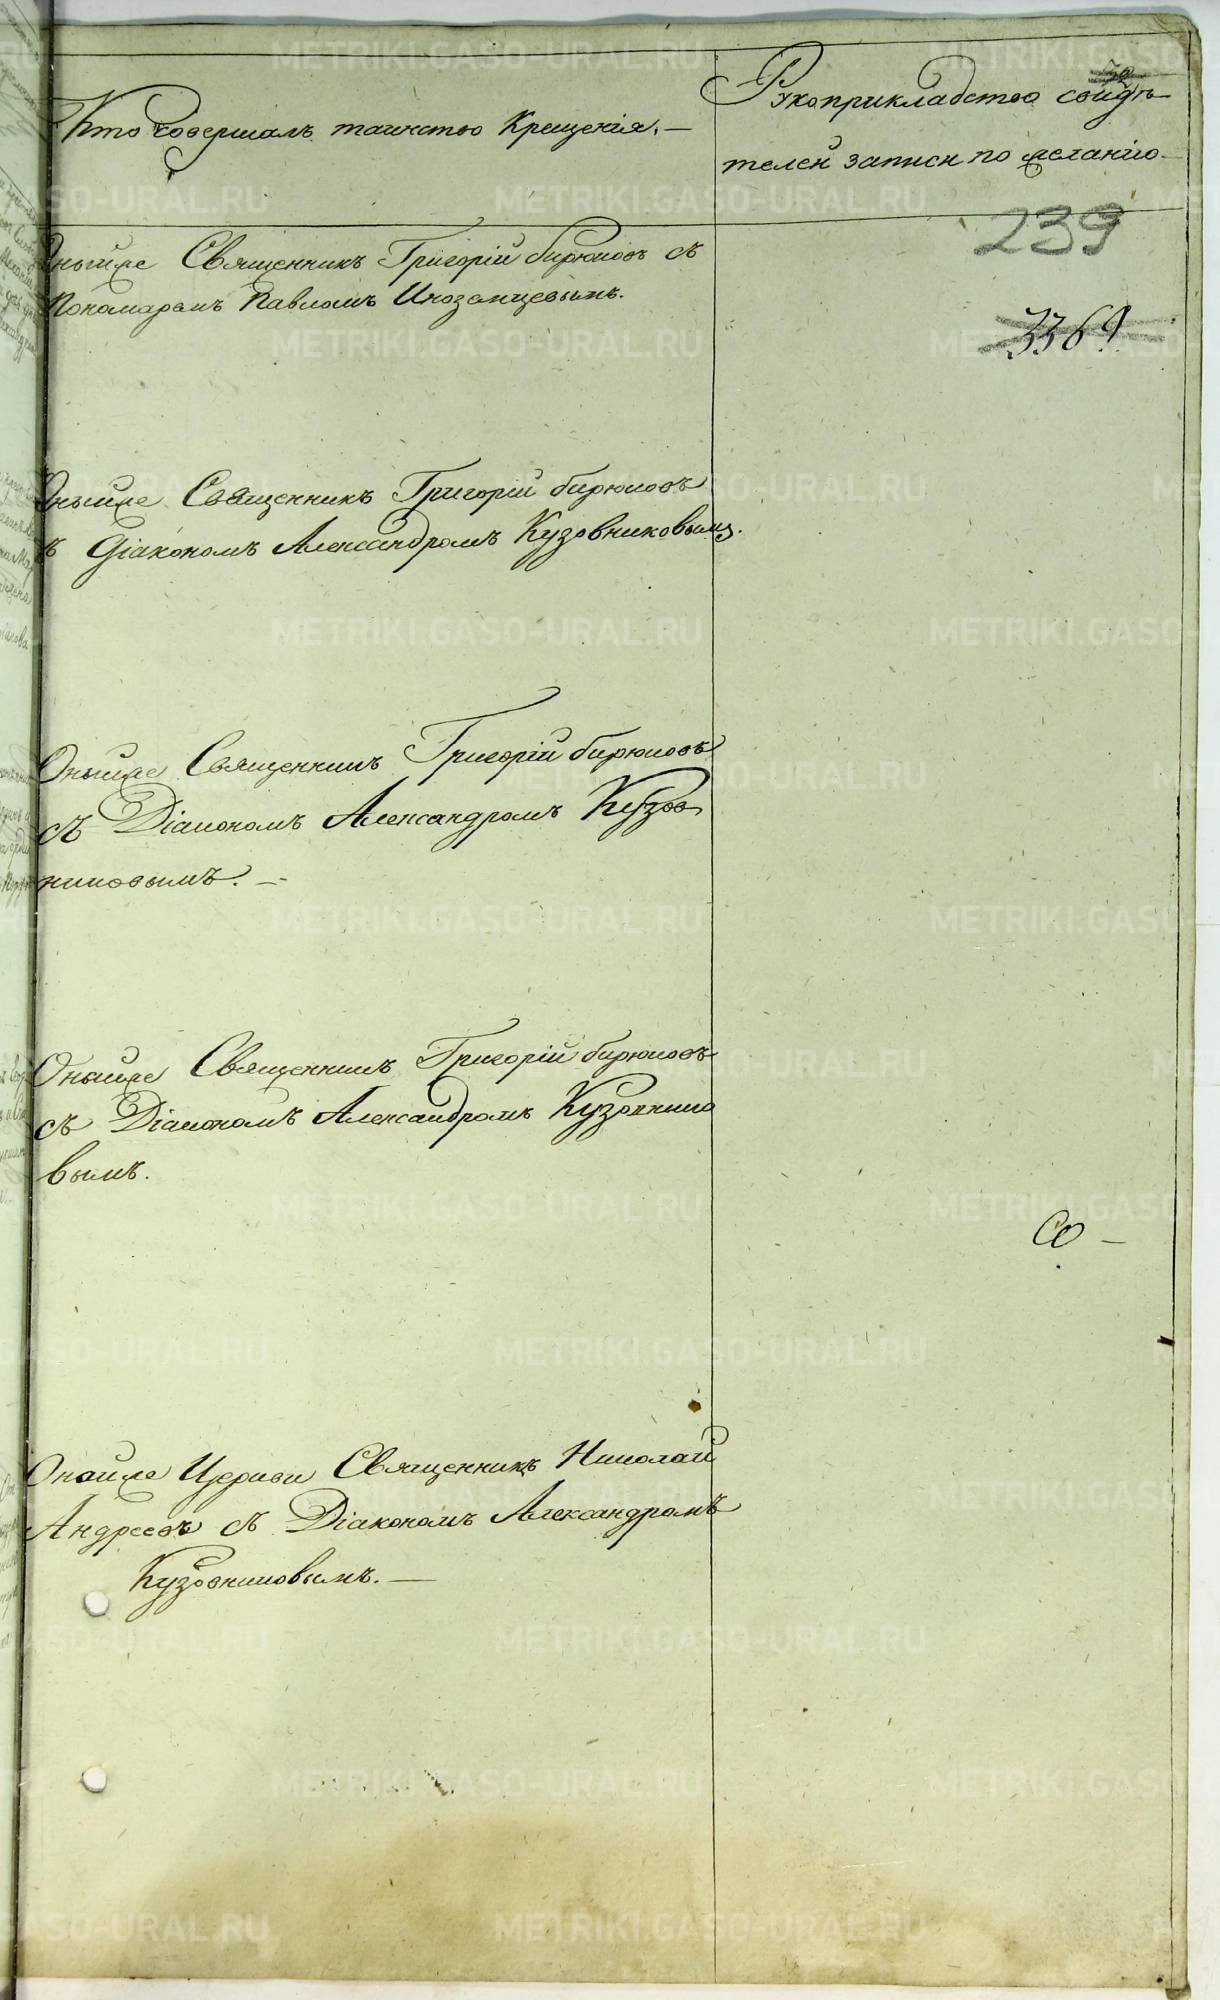 Кто совершалъ таинство Крещенія. —
Рукоприкладство свидѣ-
телей записи по желанію.
239
3369
Оныйже Священникъ Григорій Бирюковъ съ
Пономаремъ Павломъ Иноземцевымъ.
Оныйже Священникъ Григорій Бирюковъ
съ Діакономъ Александромъ Кузовниковымъ.
Оныйже Священникъ Григорій Бирюковъ
съ Діакономъ Александромъ Кузов
никовымъ. —
Оныйже Священникъ Григорій Бирюковъ
съ Діакономъ Александромъ Кузовнико
вымъ.
Со —
Онойже Церкви Священникъ Николай
Андреевъ съ Діакономъ Александромъ
Кузовниковымъ. —
METRIKI.GASO-URAL.RU